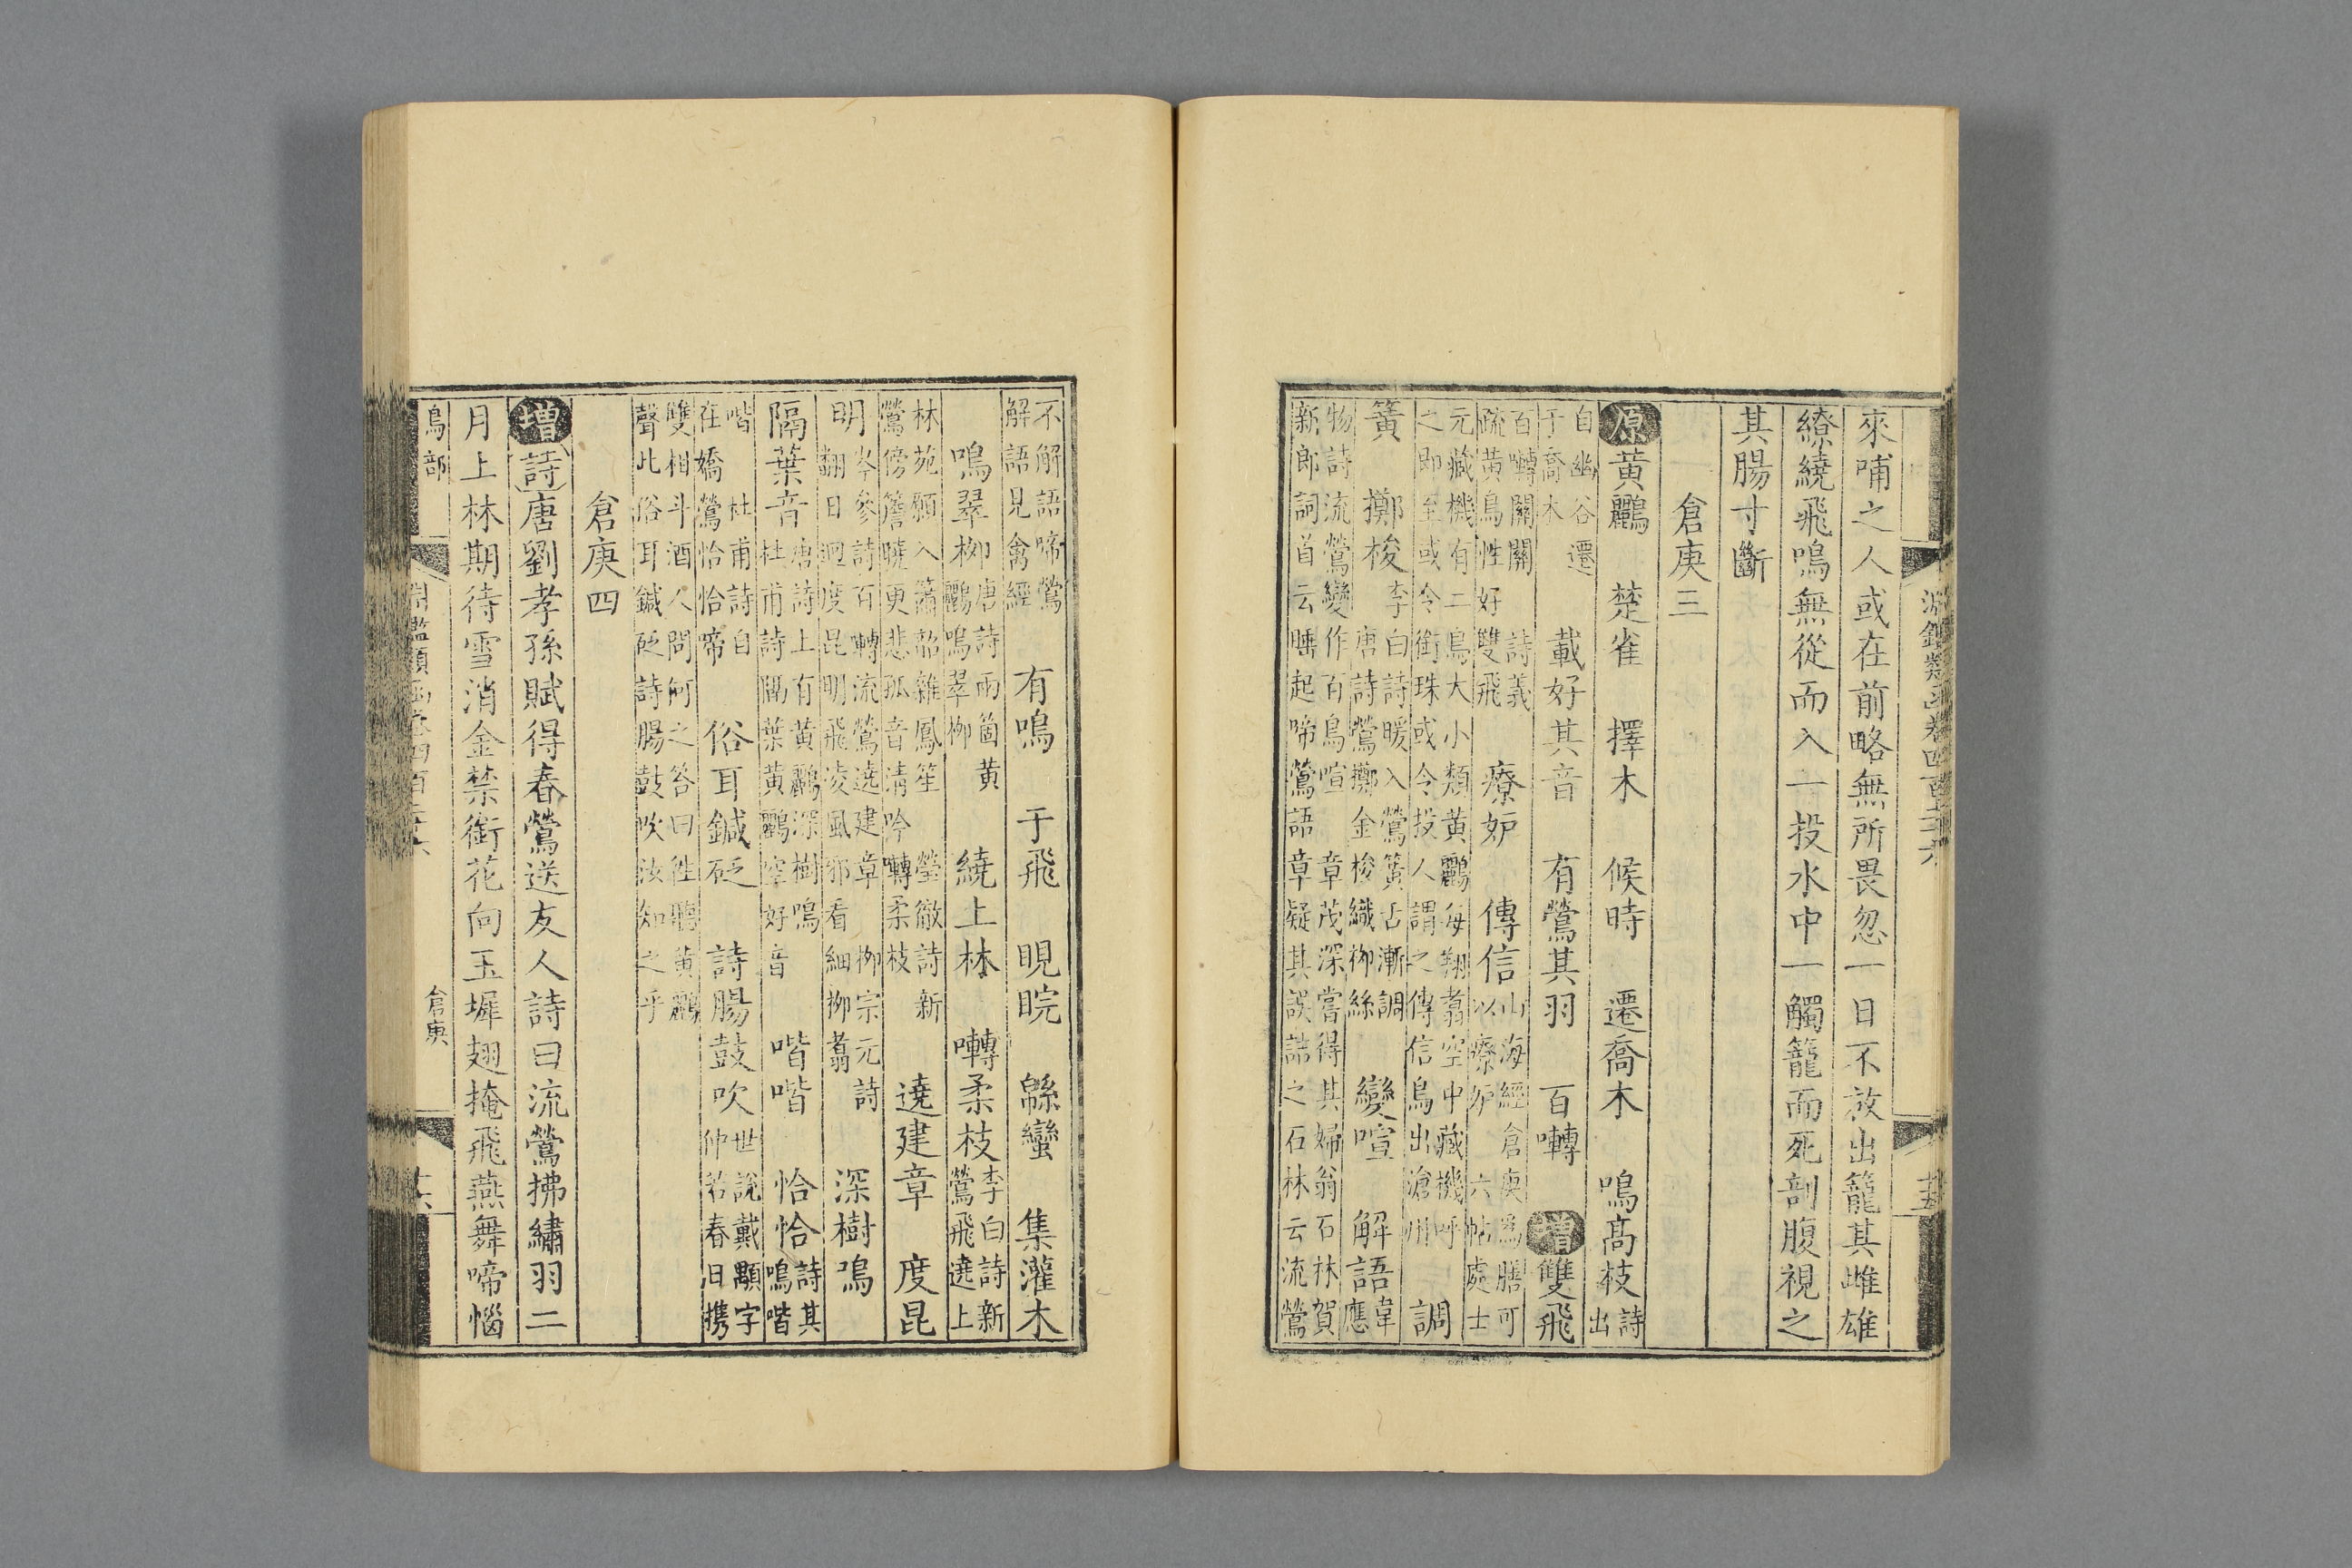 淵鑑類函卷四百二十六
來哺之人或在前略無所畏忽一日不放出籠其雌雄
繚繞飛鳴無從而入一投水中一觸籠而死剖腹視之
其腸寸斷
倉庚三
原黃鸝 楚雀 擇木 候時 遷喬木 鳴高枝詩出
自幽谷遷于喬木 載好其音 有鶯其羽 百囀 增雙飛
詩義百囀關關疏黃鳥性好雙飛 療妒 傳信山海經倉庚爲膳可以療妒 六帖處士
元藏機有二鳥大小類黃鸝每翔翥空中藏機呼之即至或令銜珠或令投人謂之傳信鳥出滄州 調
簧 擲梭李白詩暖入鶯簧舌漸調 唐詩鶯擲金梭織柳絲 變喧 解語韋應
物詩流鶯變作百鳥喧 章茂深嘗得其婦翁石林賀新郎詞首云睡起啼鶯語章疑其誤詰之石林云流鶯
不解語啼鶯解語見禽經 有鳴 于飛 睍睆 緜蠻 集灌木
鳴翠柳唐詩兩箇黃鸝鳴翠柳 繞上林 囀柔枝李白詩新鶯飛遶上
林苑願入簫韶雜鳳笙 瑩徹詩新鶯傍簷曉更悲孤音清吟囀柔枝 遶建章 度昆
明岑參詩百囀流鶯遶建章 柳宗元詩翻日迴度昆明飛凌風邪看細柳翥 深樹鳴
隔葉音唐詩上有黃鸝深樹鳴 杜甫詩隔葉黃鸝空好音 喈喈 恰恰詩其鳴喈
喈 杜甫詩自在嬌鶯恰恰啼 俗耳鍼砭 詩腸鼓吹世說戴顒字仲若春日攜
雙柑斗酒人問何之答曰往聽黃鸝聲此俗耳鍼砭詩腸鼓吹汝知之乎
倉庚四
增詩唐劉孝孫賦得春鶯送友人詩曰流鶯拂繡羽二
月上林期待雪消金禁銜花向玉墀翅掩飛燕舞啼惱
鳥部 倉庚